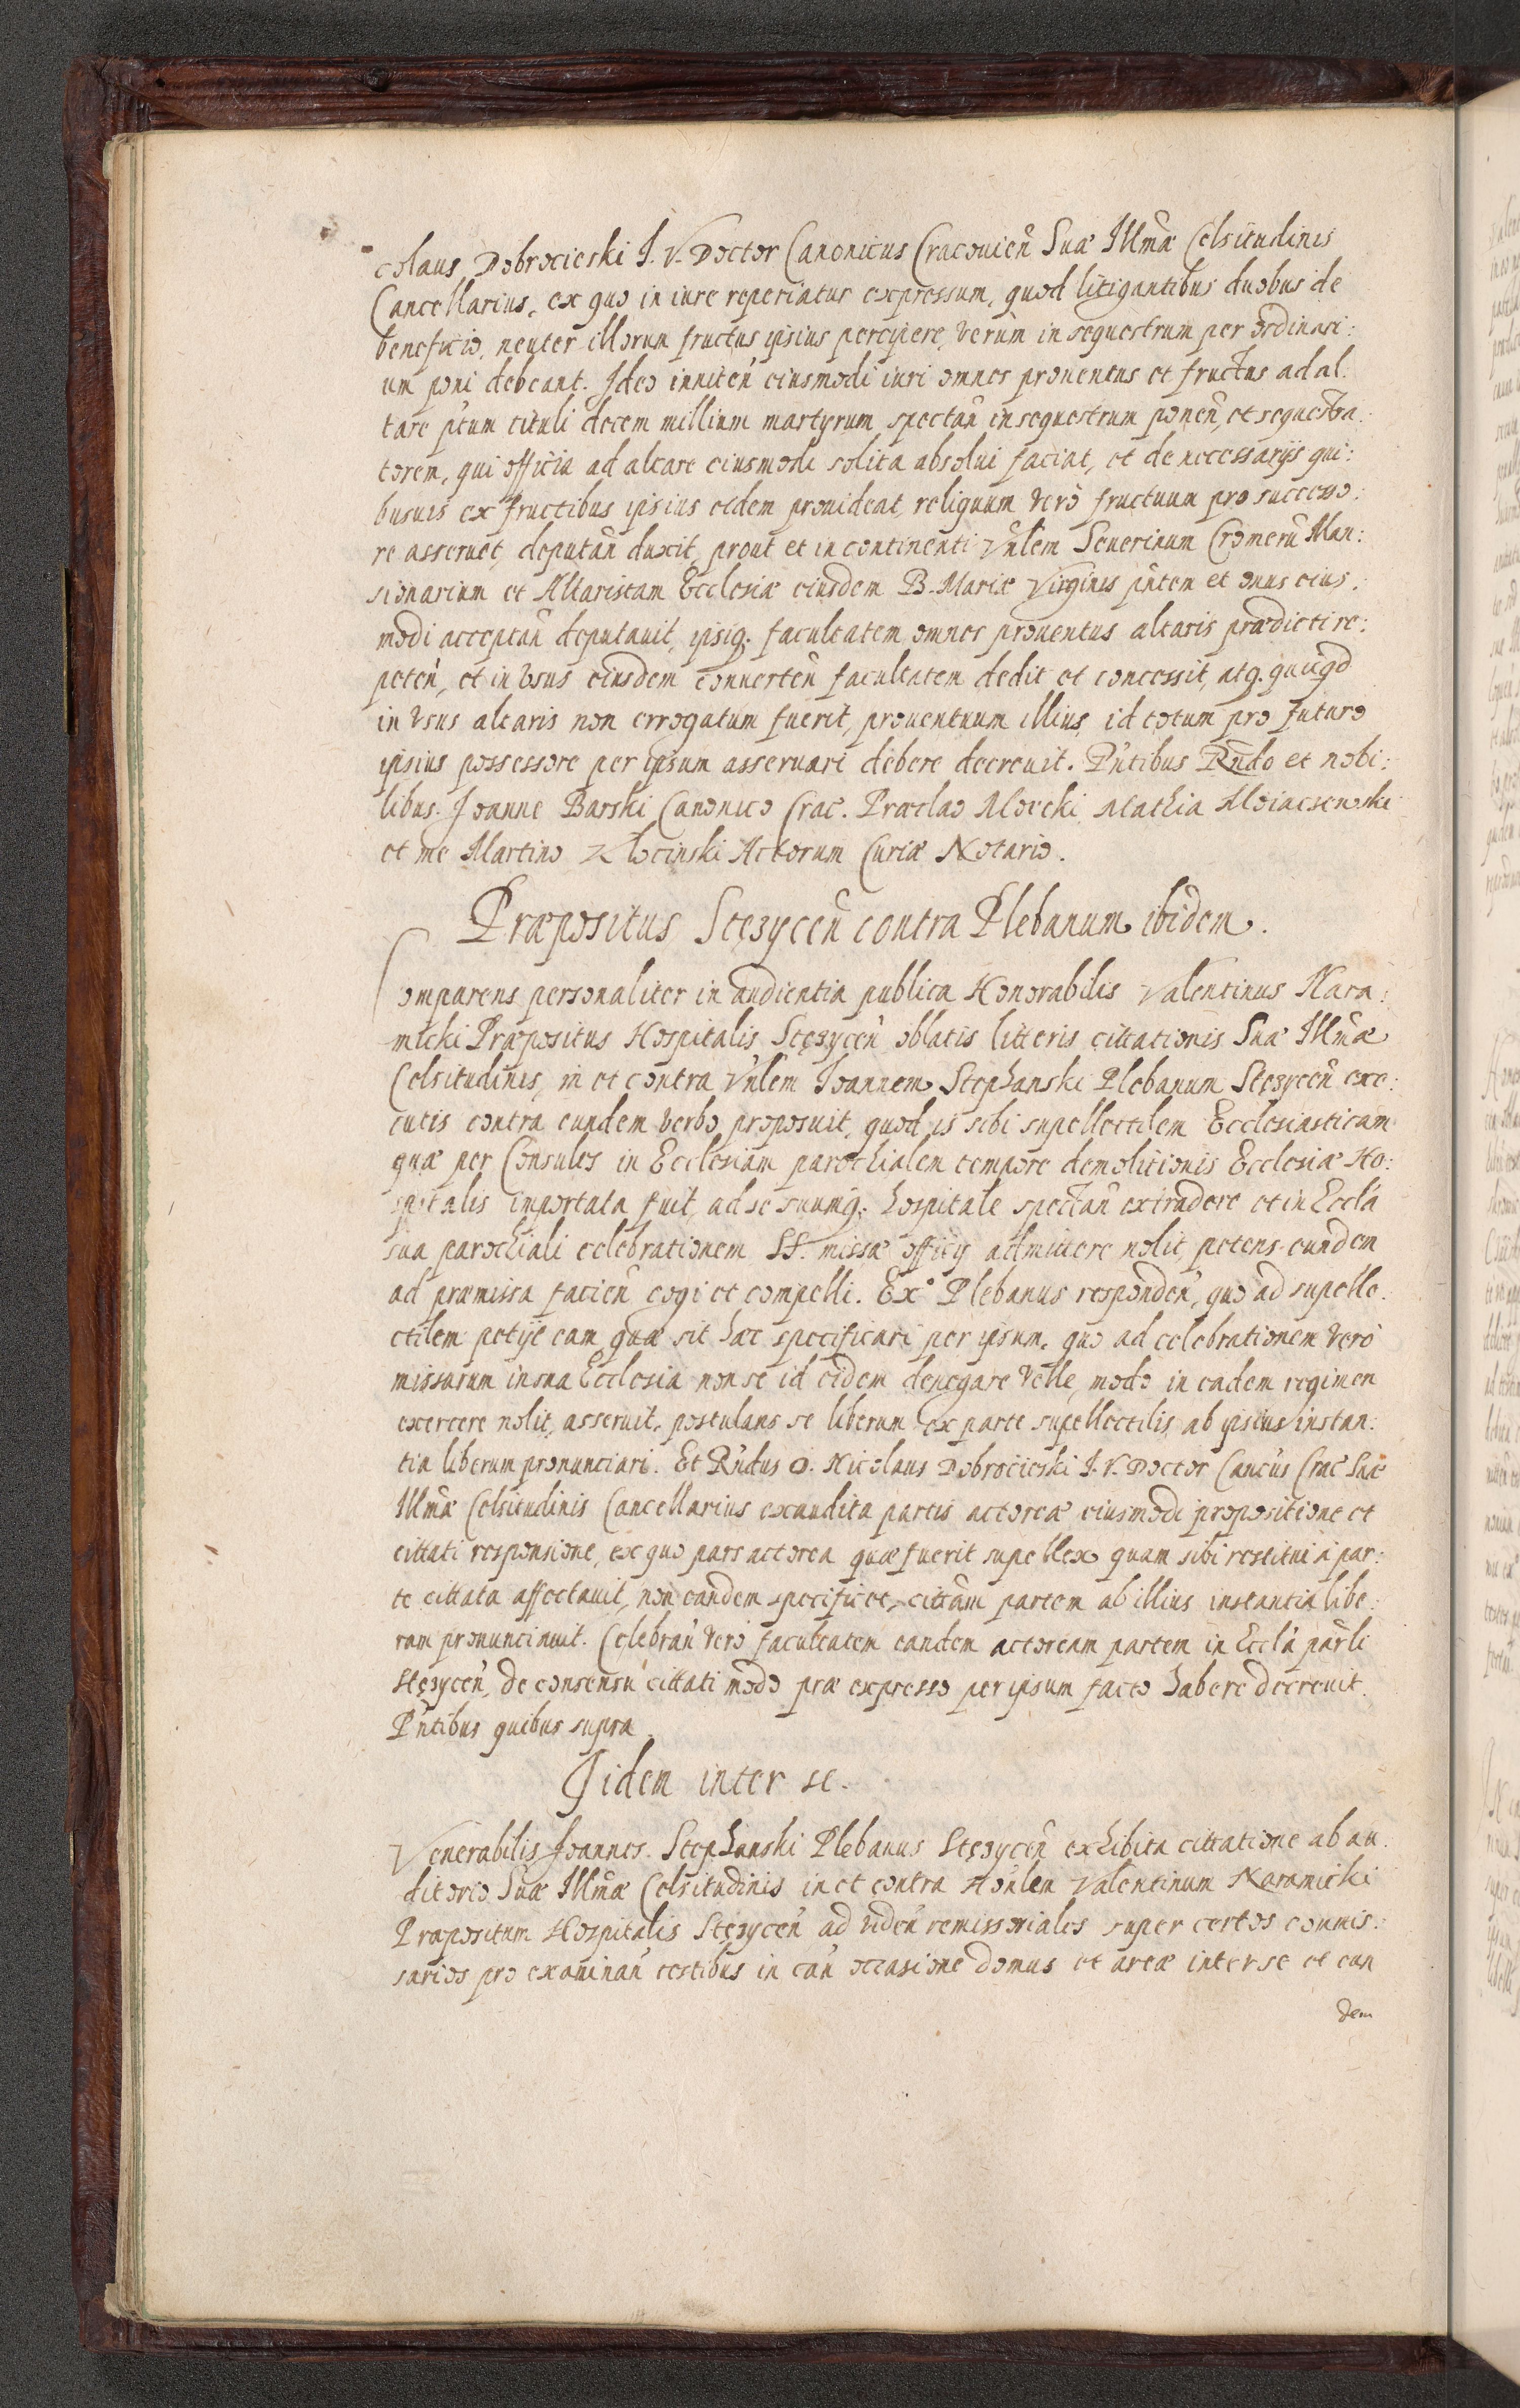 colaus Dobrocieski I. V. Doctor Canonicus Cracouień Suæ Illmæ Celsitudinis
Cancellarius, ex quo in iure reperiatur expressum, quod litigantibus duobus de
beneficio, neuter illorum fructus ipsius percipere, verùm in sequestrum per ordinari:
um poni debeant. Ideo inniteń eiusmodi iuri omnes prouentus et fructus ad al:
tare ptum tituli decem millium martyrum spectań in sequestrum poneń, et sequestra:
torem, qui officia ad altare eiusmodi solita absolui faciat, et de necessarijs qui:
busuis ex fructibus ipsius eidem prouideat, reliquum verò fructuum pro successo:
re asseruet, deputań duxit, prout et in continenti Vnlem Seuerinum Cromerũ Man:
sionarium et Altaristam Ecclesiæ eiusdem B. Mariæ Virginis pntem et onus eius:
modi acceptań deputauit, ipsiq. facultatem omnes prouentus altaris prædicti re:
peteń, et in vsus eiusdem conuerteń facultatem dedit et concessit, atq. quicqd
in vsus altaris non errogatum fuerit, prouentuum illius, id totum pro futuro
ipsius possessore per ipsum asseruari debere decreuit. Pntibus Rndo et nobi:
libus. Joanne Barski Canonico Crac. Præclao Mathia
et me Martino Actorum Curiæ Notario.
Præpositus Stęzyceń contra Plebanum ibidem.
Comparens personaliter in audientia publica Honorabilis Valentinus Nara:
micki Præpositus Hospitalis Stęzyceń oblatis litteris cittationis Suæ Illmæ
Celsitudinis, in et contra Vnlem Joannem Stephanski Plebanum Stęzyceń exe:
cutis contra eundem verbo proposuit, quod is sibi supellectilem Ecclesiasticam
quæ per Consules in Ecclesiam parochialem tempore demolitionis Ecclesiæ Ho:
spitalis importata fuit, ad se suumq; hospitale spectań extradere et in Eccla
sua parochiali celebrationem SS. missæ officij admittere nolit, petens eundem
ad præmissa facień cogi et compelli. Exº Plebanus respondeń, quo ad supelle:
ctilem petije eam quæ sit hæc specificari per ipsum, quo ad celebrationem verò
missarum in sua Ecclesia non se id eidem denegare velle, modo in eadem regimen
exercere nolit, asseruit, postulans se liberum ex parte supellectilis ab ipsius instan:
tia liberum pronunciari. Et Rndus D. Nicolaus Dobrocieski I. V. Doctor Cancus Crac Suæ
Illmæ Celsitudinis Cancellarius exaudita partis actoreæ eiusmodi propositione et
cittati responsione, ex quo pars actorea quæ fuerit supellex quam sibi restitui à par:
te cittata affectauit, non eandem specificet, cittam partem ab illius instantia libe:
ram pronunciauit. Celebrań verò facultatem eandem actoream partem in Eccla parli
Stęzyceń, de consensu cittati modo præ expresso per ipsum facto habere decreuit.
Pntibus quibus supra.
Iidem inter se.
Venerabilis Joannes Stephanski Plebanus Stęzyceń exhibita cittatione ab au:
ditorio Suæ Illmæ Celsitudinis in et contra Honlem Valentinum Naramicki
Præpositum Hospitalis Stęzyceń ad videń remissoriales super certos commis:
sarios pro examinań testibus in cań occasione domus et areæ inter se et eun
dem